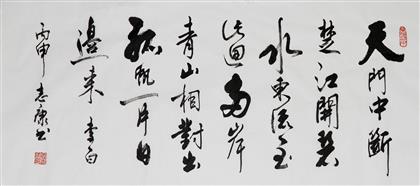 天門中斷
楚江開碧
水東流至
此迴兩岸
青山相對出
孤帆一片日
邊來 李白
丙申 志康书